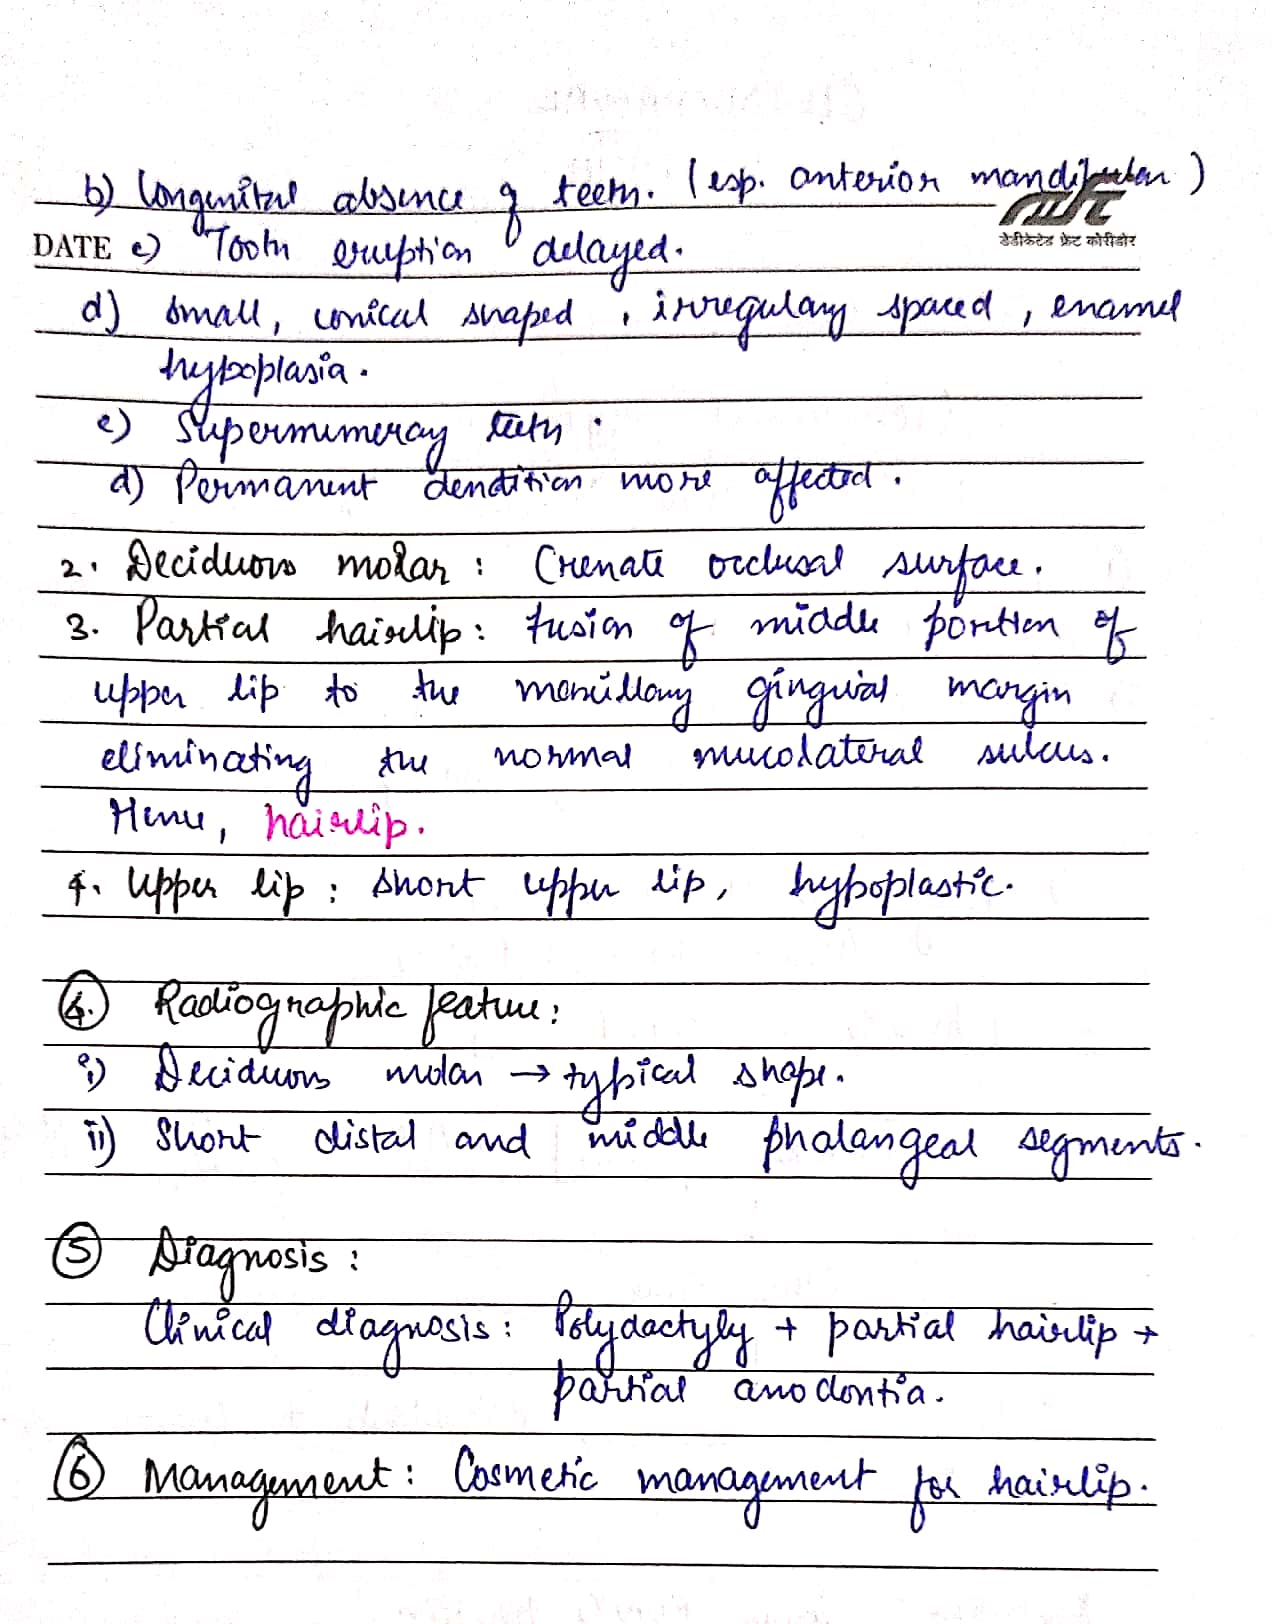 b) Congenital absence of teeth. (esp. anterior mandibular)
DATE c) Tooth eruption delayed.
डेडीकेटेड फ्रेट कोरीडोर
d) small, conical shaped, irregulary spaced, enamel
hypoplasia.
e) Supernumeray teeth.
d) Permanent dendition more affected.
2. Deciduous molar: Crenate occlusal surface.
3. Partial hairlip: fusion of middle portion of
upper lip to the maxillary gingival margin
eliminating the normal mucolateral sulcus.
Hence, hairlip.
4. Upper lip: short upper lip, hypoplastic.
4. Radiographic feature:
i) Deciduous molar → typical shape.
ii) Short distal and middle phalangeal segments.
5 Diagnosis:
Clinical diagnosis: Polydactyly + partial hairlip +
partial anodontia.
6 Management: Cosmetic management for hairlip.